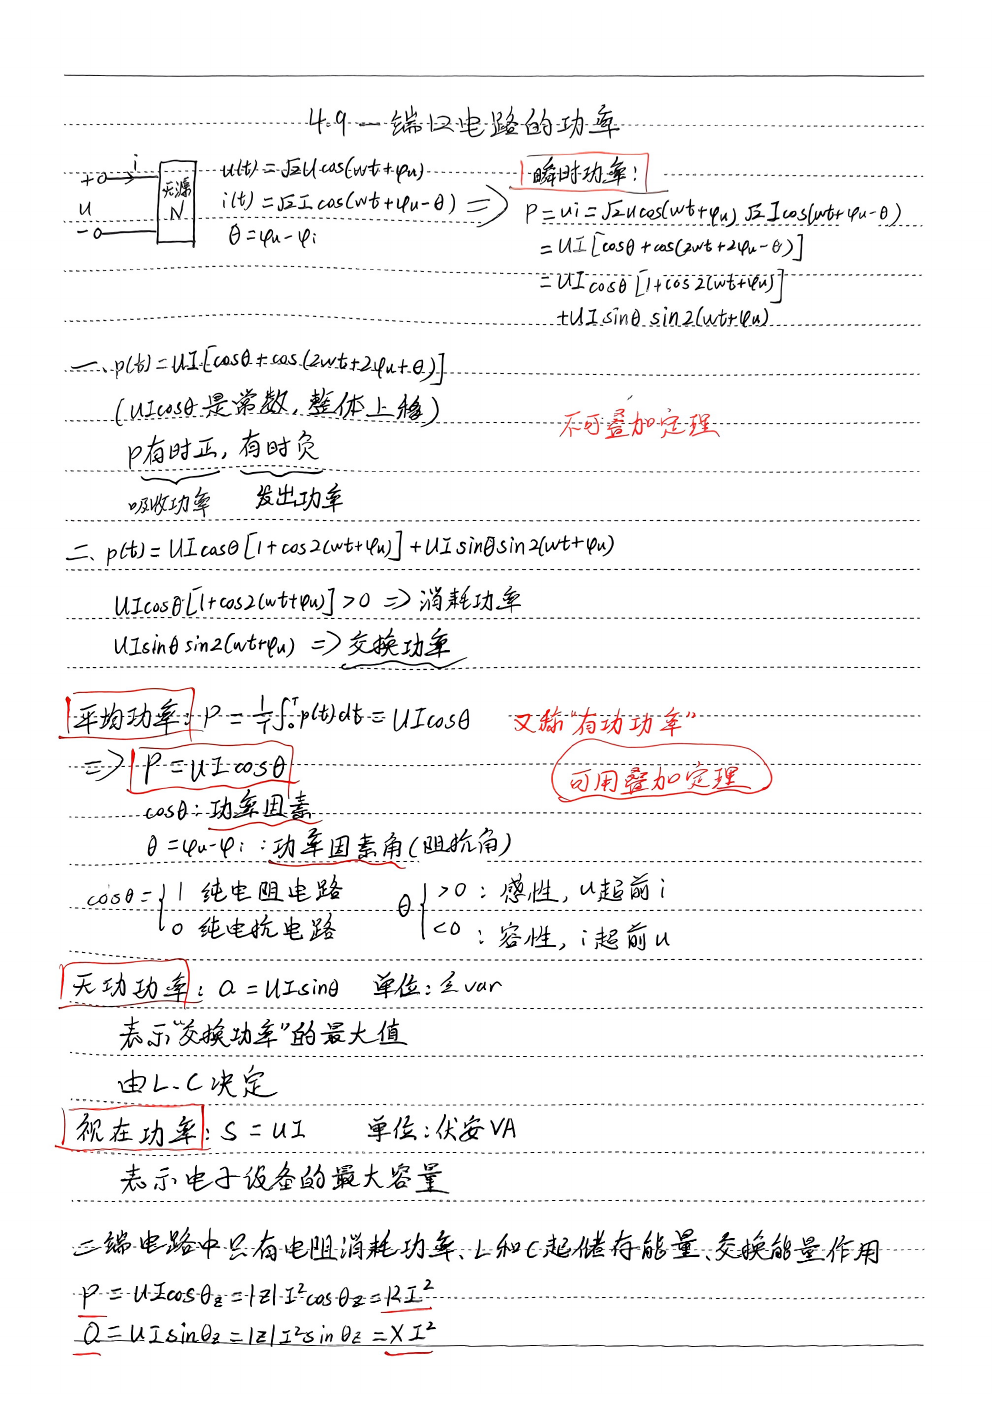 4.9 一端口电路的功率
i
+
u
-
无源
N
u(t)=√2Ucos(wt+φu)
i(t)=√2Icos(wt+φu-θ) ⇒
θ=φu-φi
瞬时功率:
P=ui=√2ucos(wt+φu)√2Icos(wt+φu-θ)
=UI[cosθ+cos(2wt+2φu-θ)]
=UIcosθ[1+cos2(wt+φu)]
+UIsinθ sin2(wt+φu)
一、p(t)=UI[cosθ+cos(2wt+2φu+θ)]
(UIcosθ是常数,整体上移)
不可叠加定理
p有时正,有时负
吸收功率 发出功率
二、p(t)=UIcosθ[1+cos2(wt+φu)]+UIsinθsin2(wt+φu)
UIcosθ[1+cos2(wt+φu)]>0 ⇒消耗功率
UIsinθsin2(wt+φu) ⇒交换功率
平均功率: P=1/T∫₀ᵀp(t)dt=UIcosθ 又称“有功功率”
⇒ P=UIcosθ 可用叠加定理
cosθ:功率因素
θ=φu-φi:功率因素角(阻抗角)
cosθ={1 纯电阻电路 θ{>0:感性,u超前i
0 纯电抗电路 <0:容性,i超前u
无功功率: Q=UIsinθ 单位:乏var
表示“交换功率”的最大值
由L、C决定
视在功率: S=UI 单位:伏安VA
表示电子设备的最大容量
二端电路中只有电阻消耗功率、L和C起储存能量、交换能量作用
P=UIcosθz=|z|I²cosθz=RI²
Q=UIsinθz=|z|I²sinθz=XI²